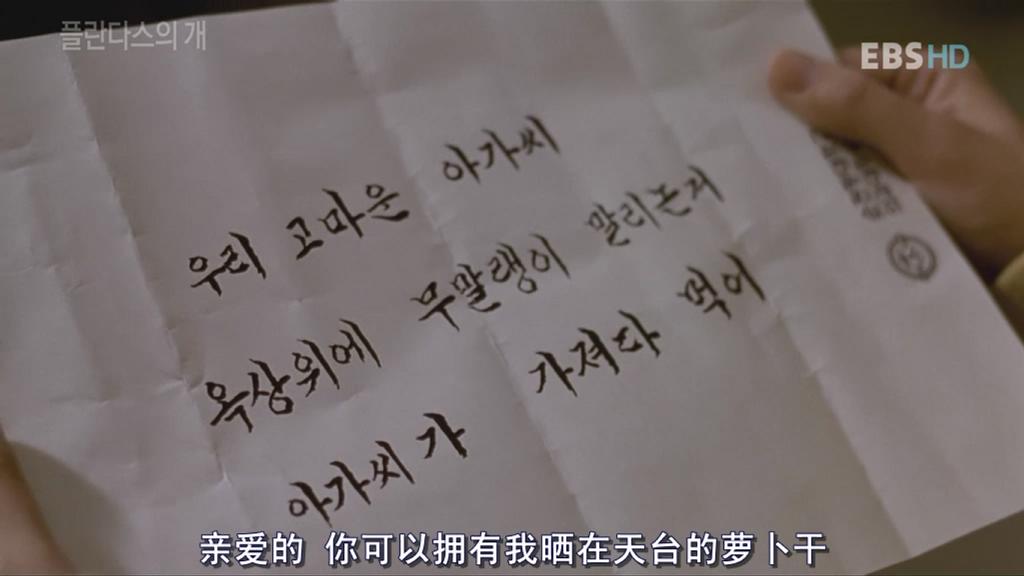 플란다스의 개
EBS HD
우리 고마운 아가씨
옥상위에 무말랭이 말리는거
아가씨가 가져다 먹어
亲爱的 你可以拥有我晒在天台的萝卜干